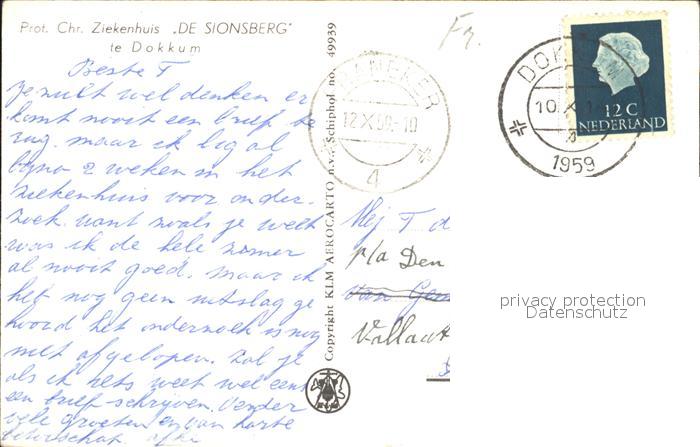 Prot. Chr. Ziekenhuis „DE SIONSBERG"
te Dokkum
Beste T
Je zult wel denken er
komt nooit een brief te
rug. maar ik lig al
bijna 2 weken in het
ziekenhuis voor onder-
zoek. want zoals je weet
was ik de hele zomer
al nooit goed. maar ik
heb nog geen uitslag ge
hoord het onderzoek is nog
niet afgelopen. Zal je
als ik iets weet wel eens
een brief schrijven. Verder
vele groeten en van harte
beterschap.
Copyright KLM AEROCARTO n.v. Schiphol no. 49939
Fr.
FRANEKER
12 X 59.-10
4
DOKKUM
10 X 1
1959
12 C
NEDERLAND
Mej T d
p/a Den
van
privacy protection
Datenschutz